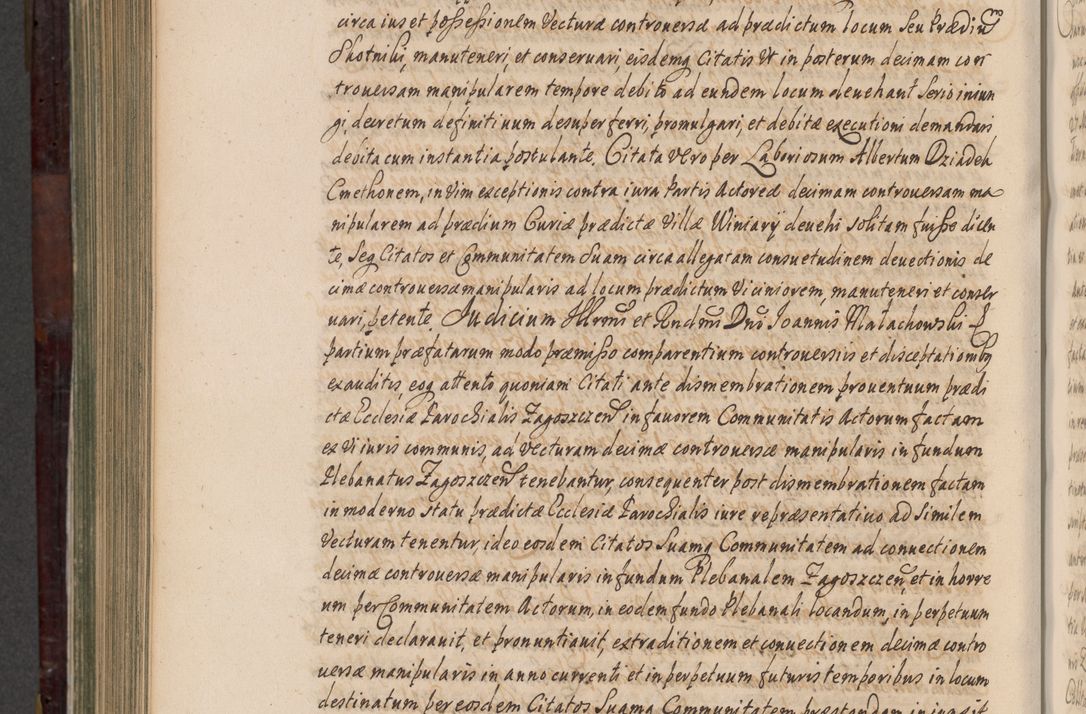 circa ius et possessionem Vecturæ controversæ ad prædictum locum Seu Prædiu
Skotniki, manuteneri, et conseruari, eisdemq Citatis Vt in posterum decimam con
trouersam manipularem tempore debito ad eundem locum deuehant Serio iniun
gi, decretum definitiuum desuper ferri, promulgari, et debitæ executioni demandari
debita cum instantia postulante. Citata Vero per Laboriosum Albertum Dziadek
Cmethonem, in Vim exceptionis contra iura Partis Actoreæ decimam controuersam ma
nipularem ad prædium Curiæ prædictæ Villæ Winiarÿ deuehi Solitam fuisse dicen
te, Seq Citatos et Communitatem Suam circa allegatam consuetudinem deuectionis de
cimæ controuersæ manipularis ad locum prædictum Viciniorem, manuteneri et conser
uari, petente. Judicium Illrmi et Rndmi Dni Joannis Małachowski
partium præfatarum modo præmisso comparentium controuersiis et disceptationibq
exauditis, eoq attento quoniam Citati ante dismembrationem prouentuum prædi
ctæ Ecclesiæ Parochialis Zagoszczen in fauorem Communitatis Actorum factam
ex Vi iuris communis, ad Vecturam decimæ controuersæ manipularis in fundum
Plebanatus Zagoszczen tenebantur, consequenter post dismembrationem factam
in moderno statu prædictæ Ecclesiæ Parochialis iure repræsentatiuo ad Similem
Vecturam tenentur, ideo eosdem Citatos Suamq Communitatem ad conuectionem
decimæ controuersæ manipularis in fundum Plebanalem Zagoszczen, et in horre
um per Communitatem Actorum, in eodem fundo Plebanali locandum, in perpetuum
teneri declarauit, et pronuntiauit, extraditionem et conuectionem decimæ contro
uersæ manipularis in anno currenti et in perpetuum futuris temporibus in locum
destinatum per eosdem Citatos Suamq Communitatem præstandam iniunxit